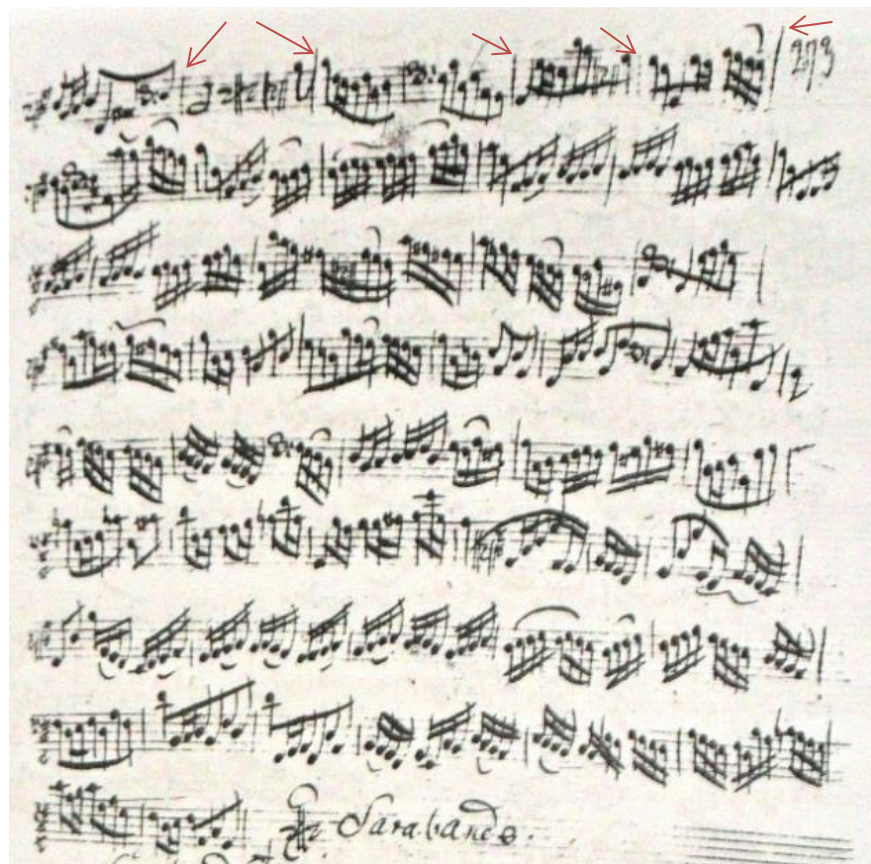 273
Sarabande.